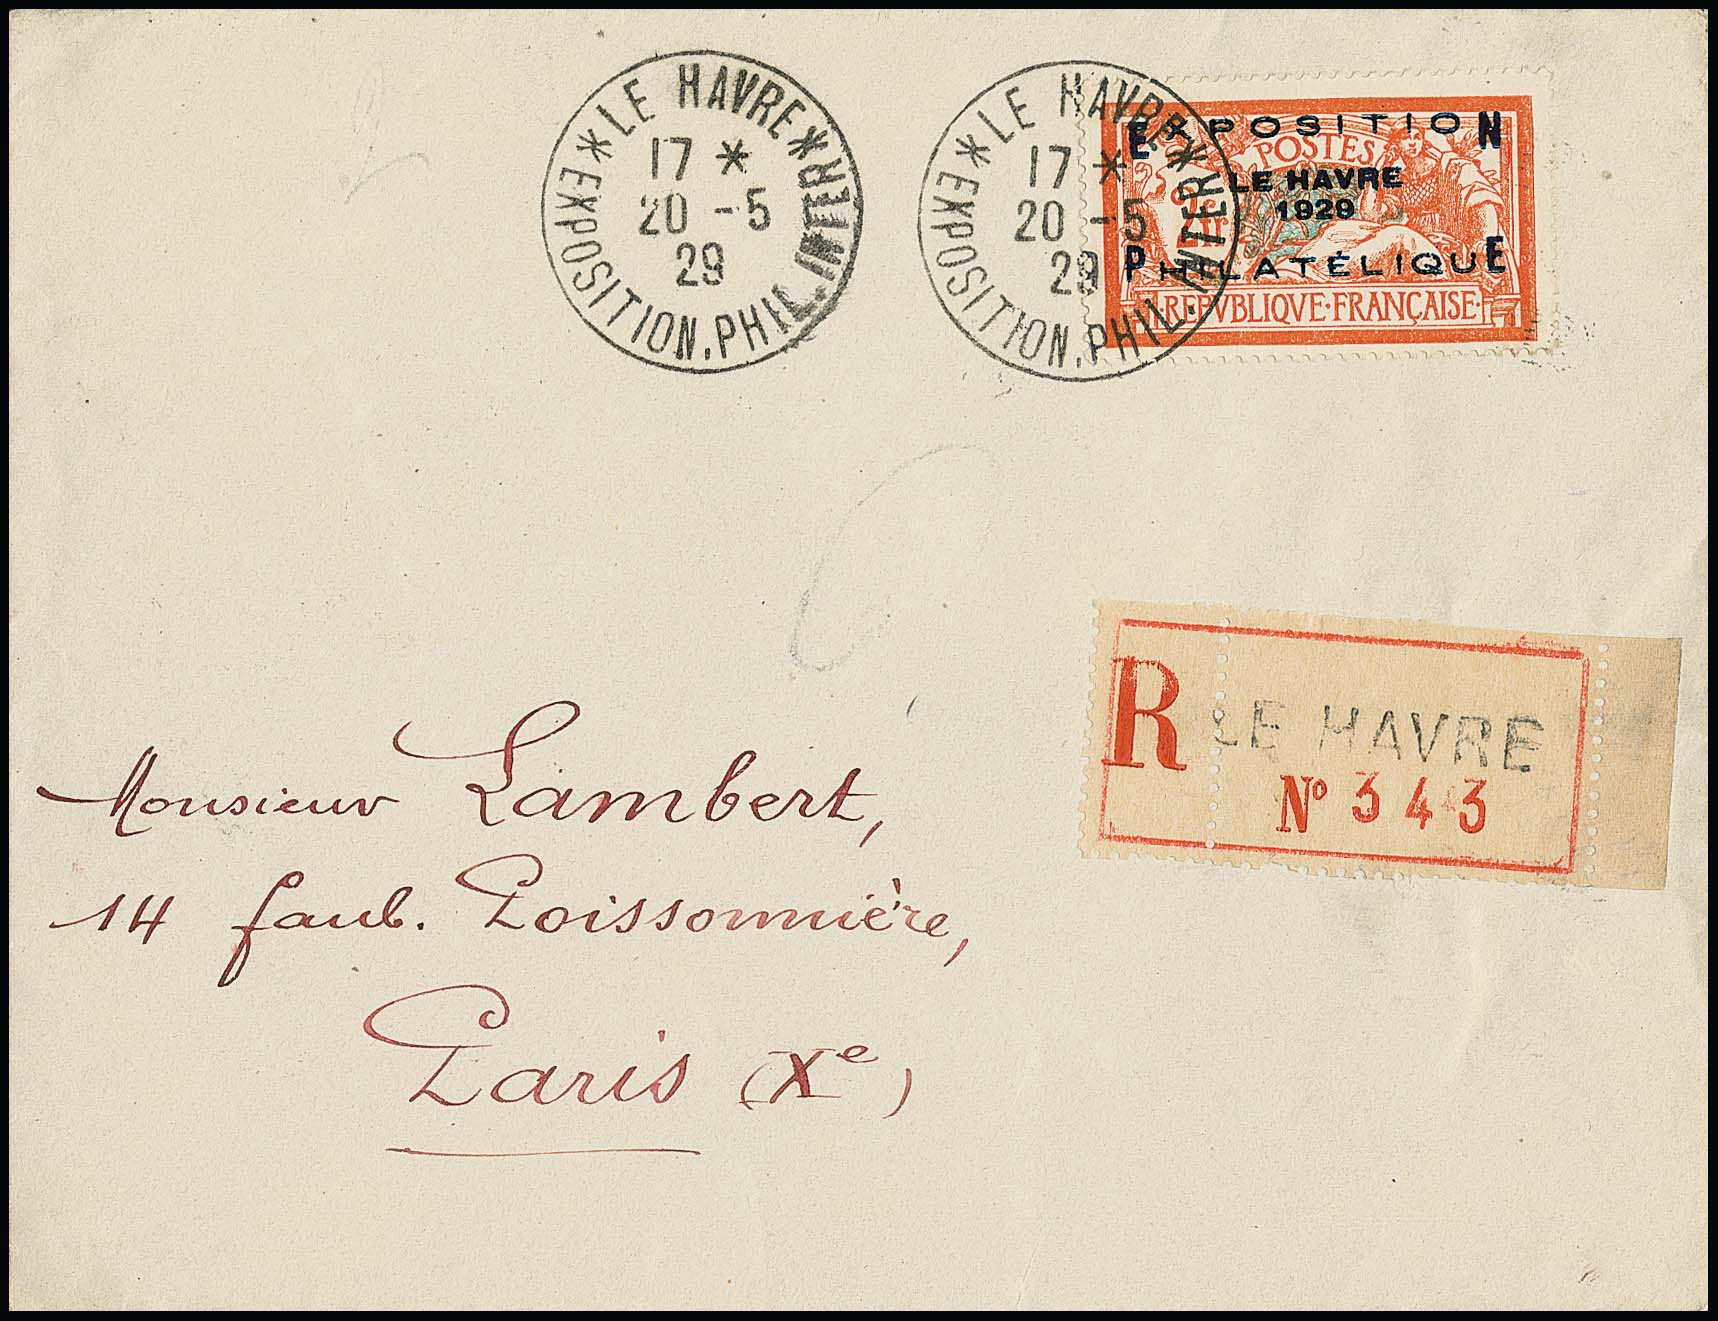 *LE HAVRE*
17 *
20 -5
29
*EXPOSITION.PHIL.INTER
*LE HAVRE*
17 *
20 -5
29
*EXPOSITION.PHIL.INTER
EXPOSITION
E N
POSTES
2 fr
LE HAVRE
1929
P E
PHILATÉLIQUE
·REPVBLIQVE·FRANÇAISE·
R LE HAVRE
Nº 343
Monsieur Lambert,
14 faub. Poissonnière,
Paris (Xe)